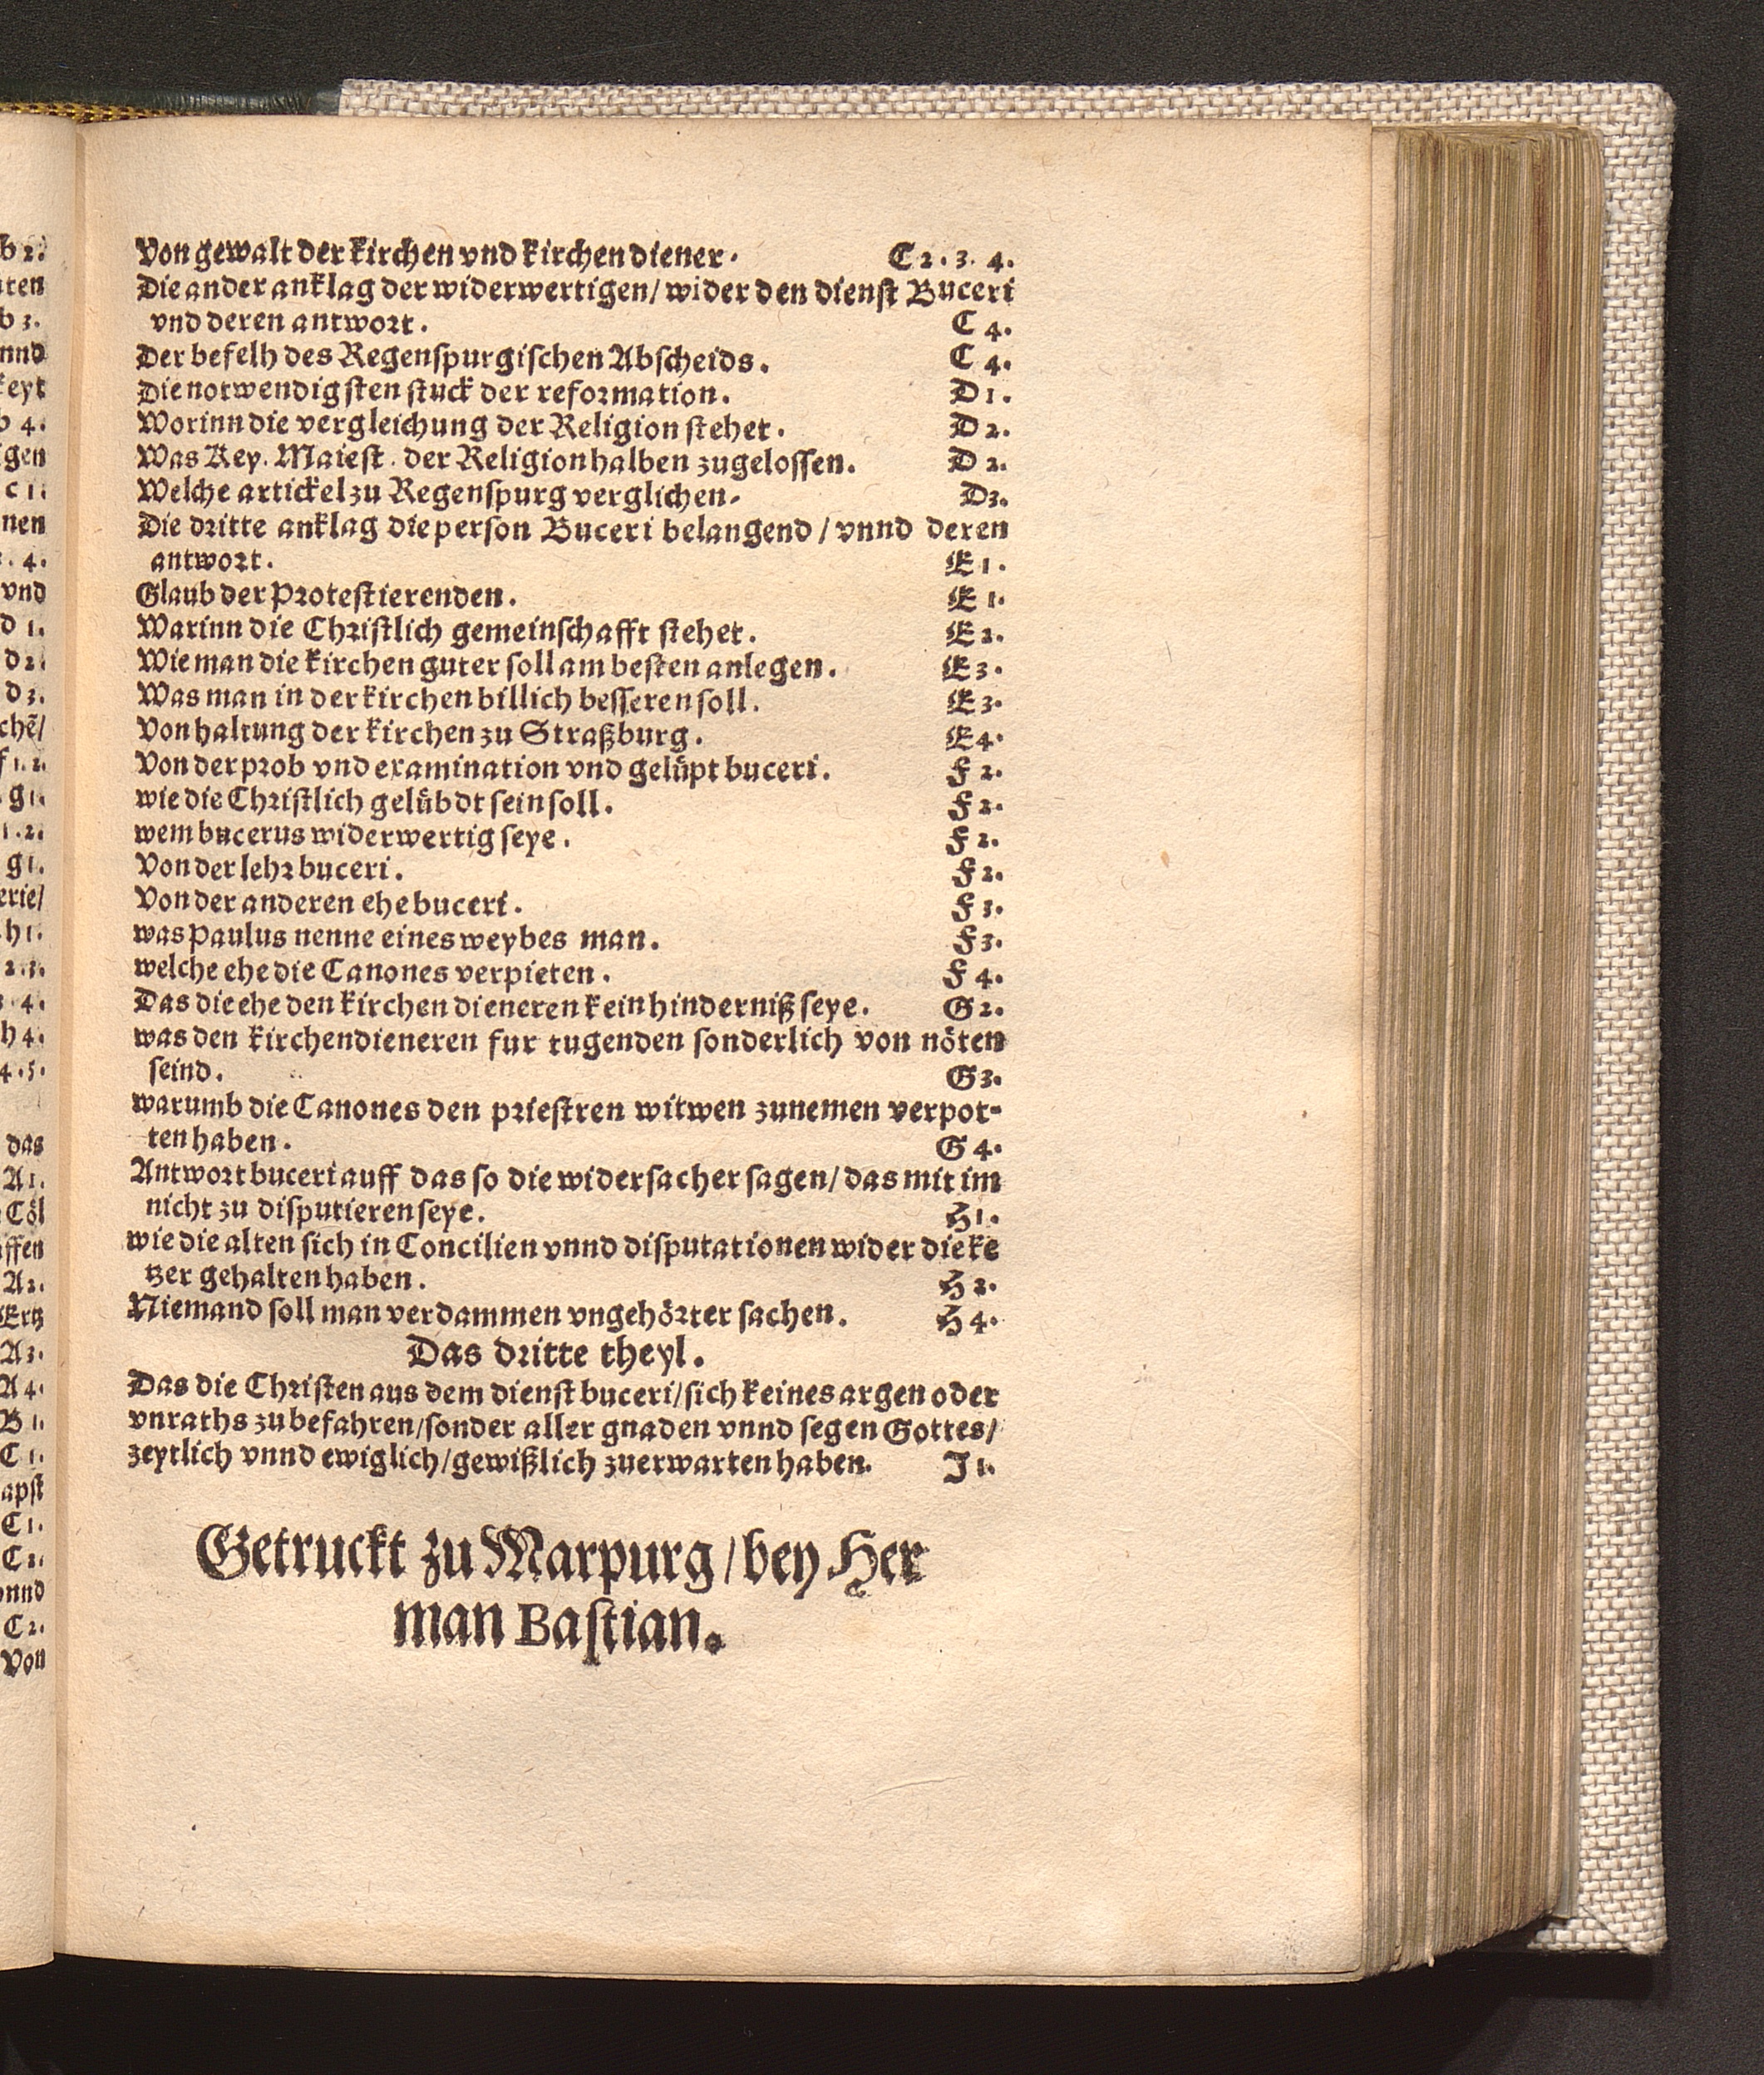 Von gewalt der kirchen vnd kirchen diener. C 2. 3. 4.
Die ander anklag der widerwertigen/ wider den dienst Buceri
vnd deren antwort. C 4.
Der befelh des Regenspurgischen Abscheids. C 4.
Die notwendigsten stuck der reformation. D 1.
Worinn die vergleichung der Religion stehet. D 2.
Was Key. Maiest. der Religion halben zugelossen. D 2.
Welche artickel zu Regenspurg verglichen. D3.
Die dritte anklag die person Buceri belangend / vnnd deren
antwort. E 1.
Glaub der Protestierenden. E 1.
Warinn die Christlich gemeinschafft stehet. E 2.
Wie man die kirchen guter soll am besten anlegen. E 3.
Was man in der kirchen billich besseren soll. E 3.
Von haltung der kirchen zu Straßburg. E 4.
Von der prob vnd examination vnd gelüpt buceri. F 2.
wie die Christlich gelübdt sein soll. F 2.
wem bucerus widerwertig seye. F 2.
Von der lehr buceri. F 2.
Von der anderen ehe buceri. F 3.
was Paulus nenne eines weybes man. F 3.
welche ehe die Canones verpieten. F 4.
Das die ehe den kirchen dieneren kein hinderniß seye. G 2.
was den kirchendieneren fur tugenden sonderlich von nöten
seind. G 3.
warumb die Canones den priestren witwen zunemen verpot-
ten haben. G 4.
Antwort buceri auff das so die widersacher sagen/ das mit im
nicht zu disputieren seye. H 1.
wie die alten sich in Concilien vnnd disputationen wider die ke
tzer gehalten haben. H 2.
Niemand soll man verdammen vngehörter sachen. H 4.
Das dritte theyl.
Das die Christen aus dem dienst buceri/ sich keines argen oder
vnraths zu befahren/ sonder aller gnaden vnnd segen Gottes/
zeytlich vnnd ewiglich/ gewißlich zuerwarten haben. J 1.
Getruckt zu Marpurg / bey Her
man Bastian.